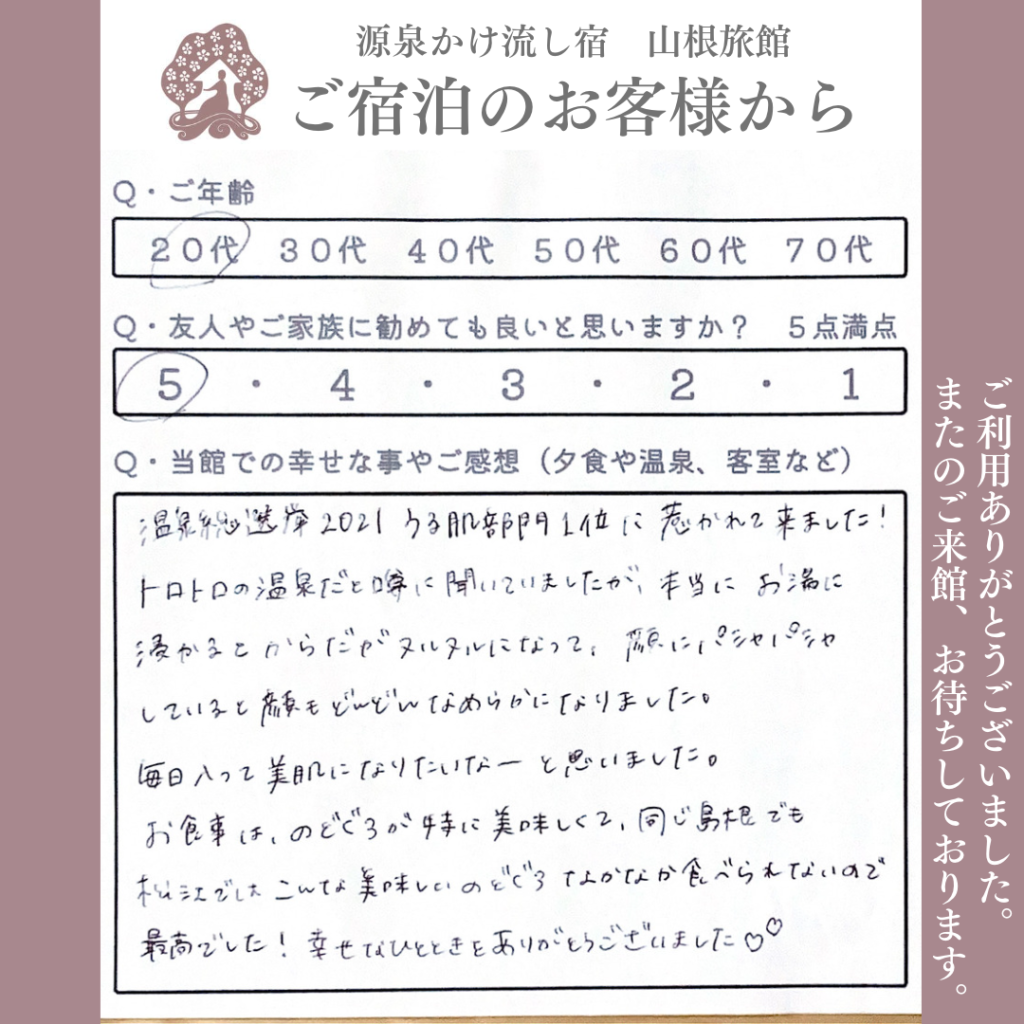 源泉かけ流し宿　山根旅館
ご宿泊のお客様から
Q・ご年齢
20代 30代 40代 50代 60代 70代
Q・友人やご家族に勧めても良いと思いますか？　5点満点
5 ・ 4 ・ 3 ・ 2 ・ 1
Q・当館での幸せな事やご感想（夕食や温泉、客室など）
温泉総選挙2021うる肌部門1位に惹かれて来ました！
トロトロの温泉だと噂に聞いていましたが、本当にお湯に
浸かるとからだがヌルヌルになって、顔にパシャパシャ
していると顔もどんどんなめらかになりました。
毎日入って美肌になりたいなーと思いました。
お食事は、のどぐろが特に美味しくて、同じ島根でも
松江ではこんな美味しいのどぐろなかなか食べられないので
最高でした！幸せなひとときをありがとうございました♡♡
ご利用ありがとうございました。
またのご来館、お待ちしております。